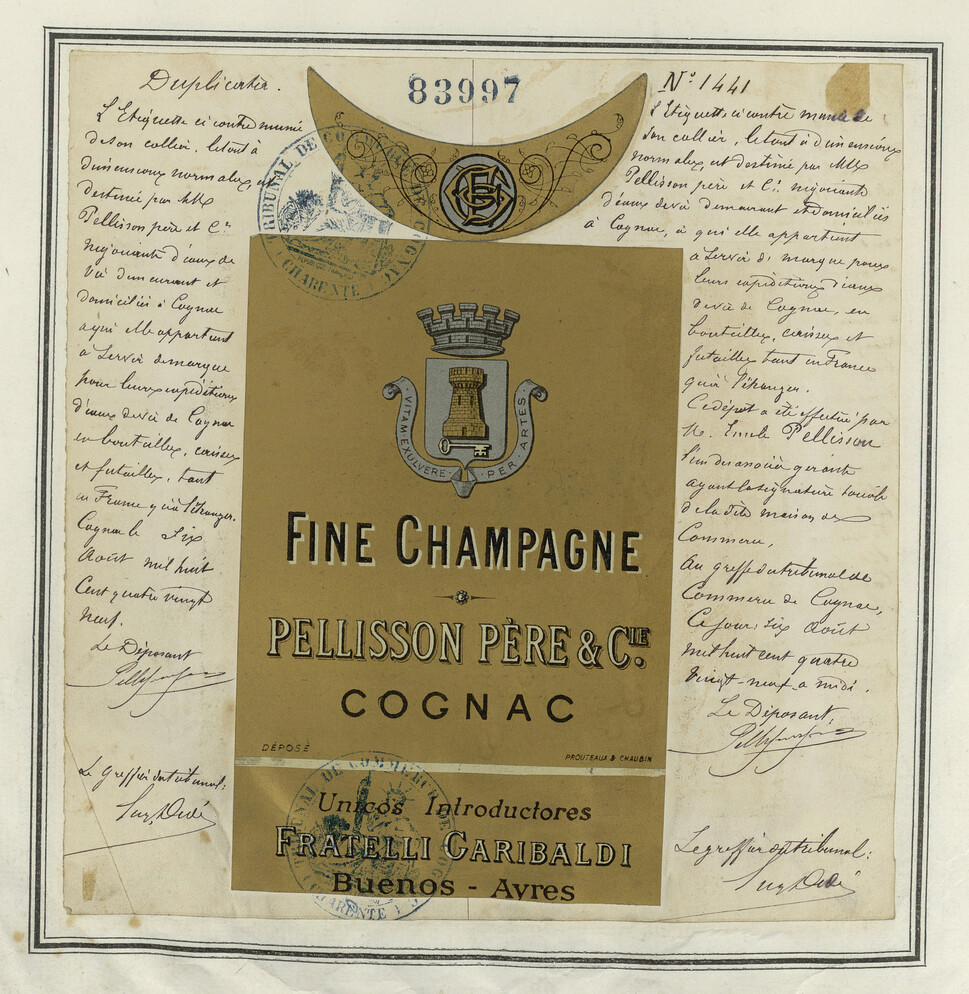 Duplicata.
L'Etiquette ci contre munie
de son collier, le tout à
dimensions normales, est
destinée par MM
Pellisson père et Cie
négociants d'eaux de
vie demeurant et
domiciliés à Cognac
a qui elle appartient
à servir de marque
pour leurs expéditions
d'eaux de vie de Cognac
en bouteilles, caisses
et futailles, tant
en France qu'à l'étranger.
Cognac le Six
Août mil huit
Cent quatre vingt
neuf.
Le Déposant
Le Greffier du tribunal:
83997
TRIBUNAL DE COMMERCE DE COGNAC
CHARENTE
VITAM EXULVERE PER ARTES
FINE CHAMPAGNE
PELLISSON PÈRE & CIE.
COGNAC
DÉPOSÉ
PROUTEAUX & CHAUBIN
Unicos Introductores
FRATELLI GARIBALDI
Buenos - Ayres
TRIBUNAL DE COMMERCE DE COGNAC
CHARENTE
No 1441
L'Etiquette ci contre munie de
son collier, le tout à dimensions
normales, est destiné par MM
Pellisson père et Cie négociants
d'eaux de vie demeurant et domiciliés
à Cognac, à qui elle appartient
à servir de marque pour
leurs expéditions d'eaux
de vie de Cognac, en
bouteilles, caisses et
futailles tant en France
qu'à l'étranger.
Ce dépôt a été effectué par
M. Emile Pellisson
l'un des associés gérants
ayant la signature sociale
de la dite maison de
Commerce,
Au greffe du tribunal de
Commerce de Cognac,
Ce jour, six Août
mil huit cent quatre
vingt-neuf a midi.
Le Déposant:
Le greffier du tribunal: